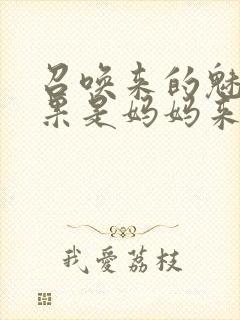 召唤来的魅
果是妈妈来
我爱荔枝